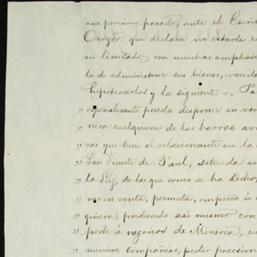 año próximo pasado, ante el Escri
Orozco, que declara no estarle re
ni limitado, con muchas ampliac
la de administrar sus bienes, vende
hipotecarlos y la siguiente =. Pa
" especialmente pueda disponer en ven
" nera cualquiera de las barras avi
" ras que tiene el relacionante en la
" San Vicente de Paul, sita en
" la Luz, de las que como se ha dicho
" nar en venta, permuta, empeño ú
" quiera; pudiendo así mismo con
" pecto á negocios de Minería, cu
" Compañías, pedir posesion